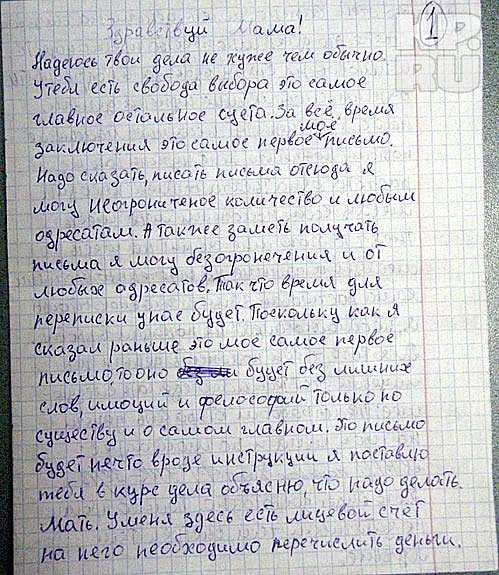 Здравствуй Мама!
1
KP.RU
Надеюсь твои дела не хуже чем обычно.
У тебя есть свобода выбора это самое
главное остальное суета. За всё время
заключения это самое первое моё письмо.
Надо сказать, писать письма отсюда я
могу неогрониченое количество и любым
адресатам. А также заметь получать
письма я могу безогронечения и от
любых адресатов. Так что время для
переписки у нас будет. Поскольку как я
сказал раньше это моё самое первое
письмо, то оно будет без лишних
слов, имоций и фелософий только по
существу и о самом главном. Это письмо
будет нечто вроде инструкции я поставлю
тебя в курс дела объясню, что надо делать.
Мать. У меня здесь есть лицевой счёт
на него необходимо перечислить деньги.